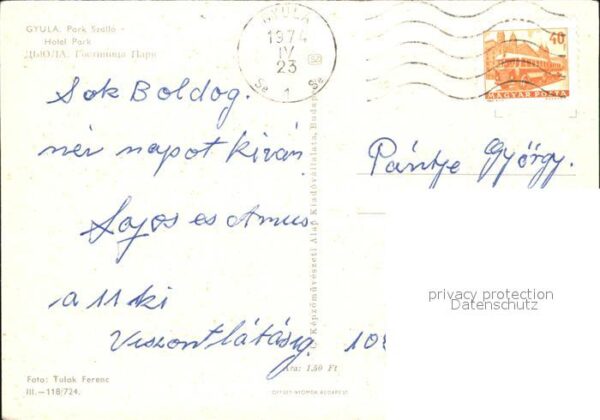 GYULA. Park Szálló -
Hotel Park
ДЬЮЛА. Гостиница Парк
GYULA
1974
IV
23
Se 1 Se
40
MAGYAR POSTA
Sok Boldog.
név napot kíván
Lajos es
a 11 ki
Viszontlátásig.
Pántje György.
10
privacy protection
Datenschutz
Képzőművészeti Alap Kiadóvállalata, Budapest
Ára: 1,50 Ft
Foto: Tulok Ferenc
III.—118/724.
OFFSET-NYOMDA BUDAPEST